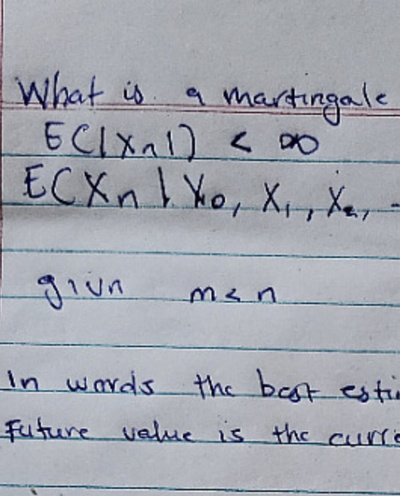 What is a martingale
E(|Xn|) < ∞
E(Xn | X0, X1, X2,
givn m < n
In words the best esti
Future value is the curre